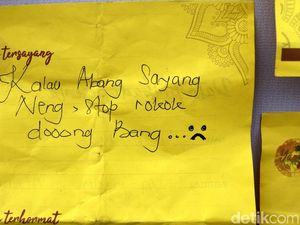 tersayang
Kalau Abang Sayang
Neng, stop rokok
dooong Bang...
terhormat
detikcom